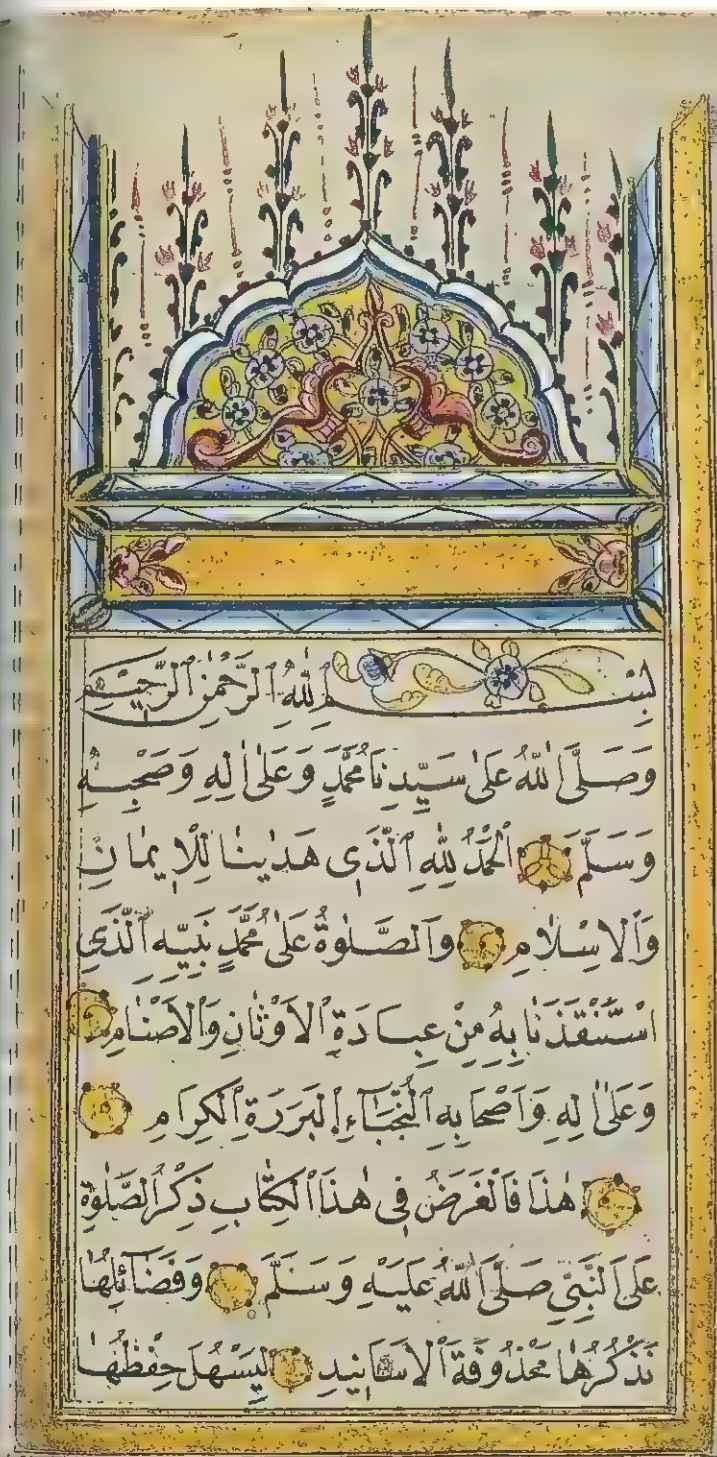 بِسْمِ اللّٰهِ الرَّحْمٰنِ الرَّحِيْمِ
وَصَلَّى اللّٰهُ عَلٰى سَيِّدِنَا مُحَمَّدٍ وَعَلٰى اٰلِهِ وَصَحْبِهِ
وَسَلَّمَ اَلْحَمْدُ لِلّٰهِ الَّذِى هَدٰينَا لِلْاِيمَانِ
وَالْاِسْلَامِ وَالصَّلٰوةُ عَلٰى مُحَمَّدٍ نَبِيِّهِ الَّذِى
اسْتَنْقَذَنَا بِهِ مِنْ عِبَادَةِ الْاَوْثَانِ وَالْاَصْنَامِ
وَعَلٰى اٰلِهِ وَاَصْحَابِهِ النُّجَبَآءِ الْبَرَرَةِ الْكِرَامِ
هٰذَا فَالْغَرَضُ فِى هٰذَا الْكِتَابِ ذِكْرُ الصَّلٰوةِ
عَلَى النَّبِيِّ صَلَّى اللّٰهُ عَلَيْهِ وَسَلَّمَ وَفَضَآئِلِهَا
نَذْكُرُهَا مَحْذُوفَةَ الْاَسَانِيدِ لِيَسْهُلَ حِفْظُهَا